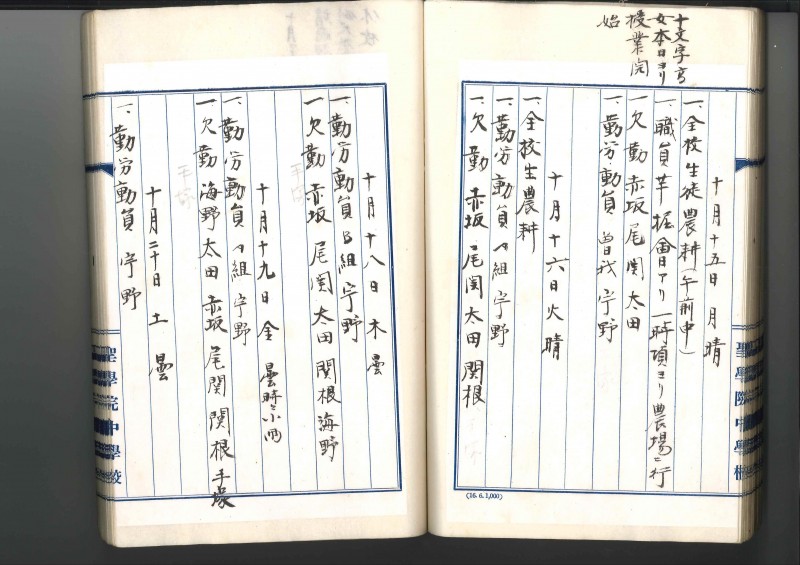 十文字高
女本日ヨリ
授業開
始
十月十五日 月 晴
一、全校生徒農耕(午前中)
一、職員芋掘會アリ 一時頃ヨリ農場ニ行
一、欠勤 赤坂 尾関 太田
一、勤労動員 曽我 宇野
十月十六日 火 晴
一、全校生農耕
一、勤労動員 組 宇野
一、欠勤 赤坂 尾関 太田 関根
聖學院中學校
(16. 6. 1,000)
十月十八日 木 曇
一、勤労動員 B組 宇野
一、欠勤 赤坂 尾関 太田 関根 海野
十月十九日 金 曇時々小雨
一、勤労動員 組 宇野
一、欠勤 海野 太田 赤坂 尾関 関根 手塚
十月二十日 土 曇
一、勤労動員 宇野
聖學院中學校